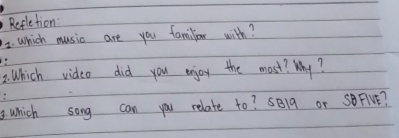 Refletion:
1. Which music are you familiar with?
:
2. Which video did you enjoy the most? Why?
:
3. which song can you relate to? SB19 or SBFIVE?